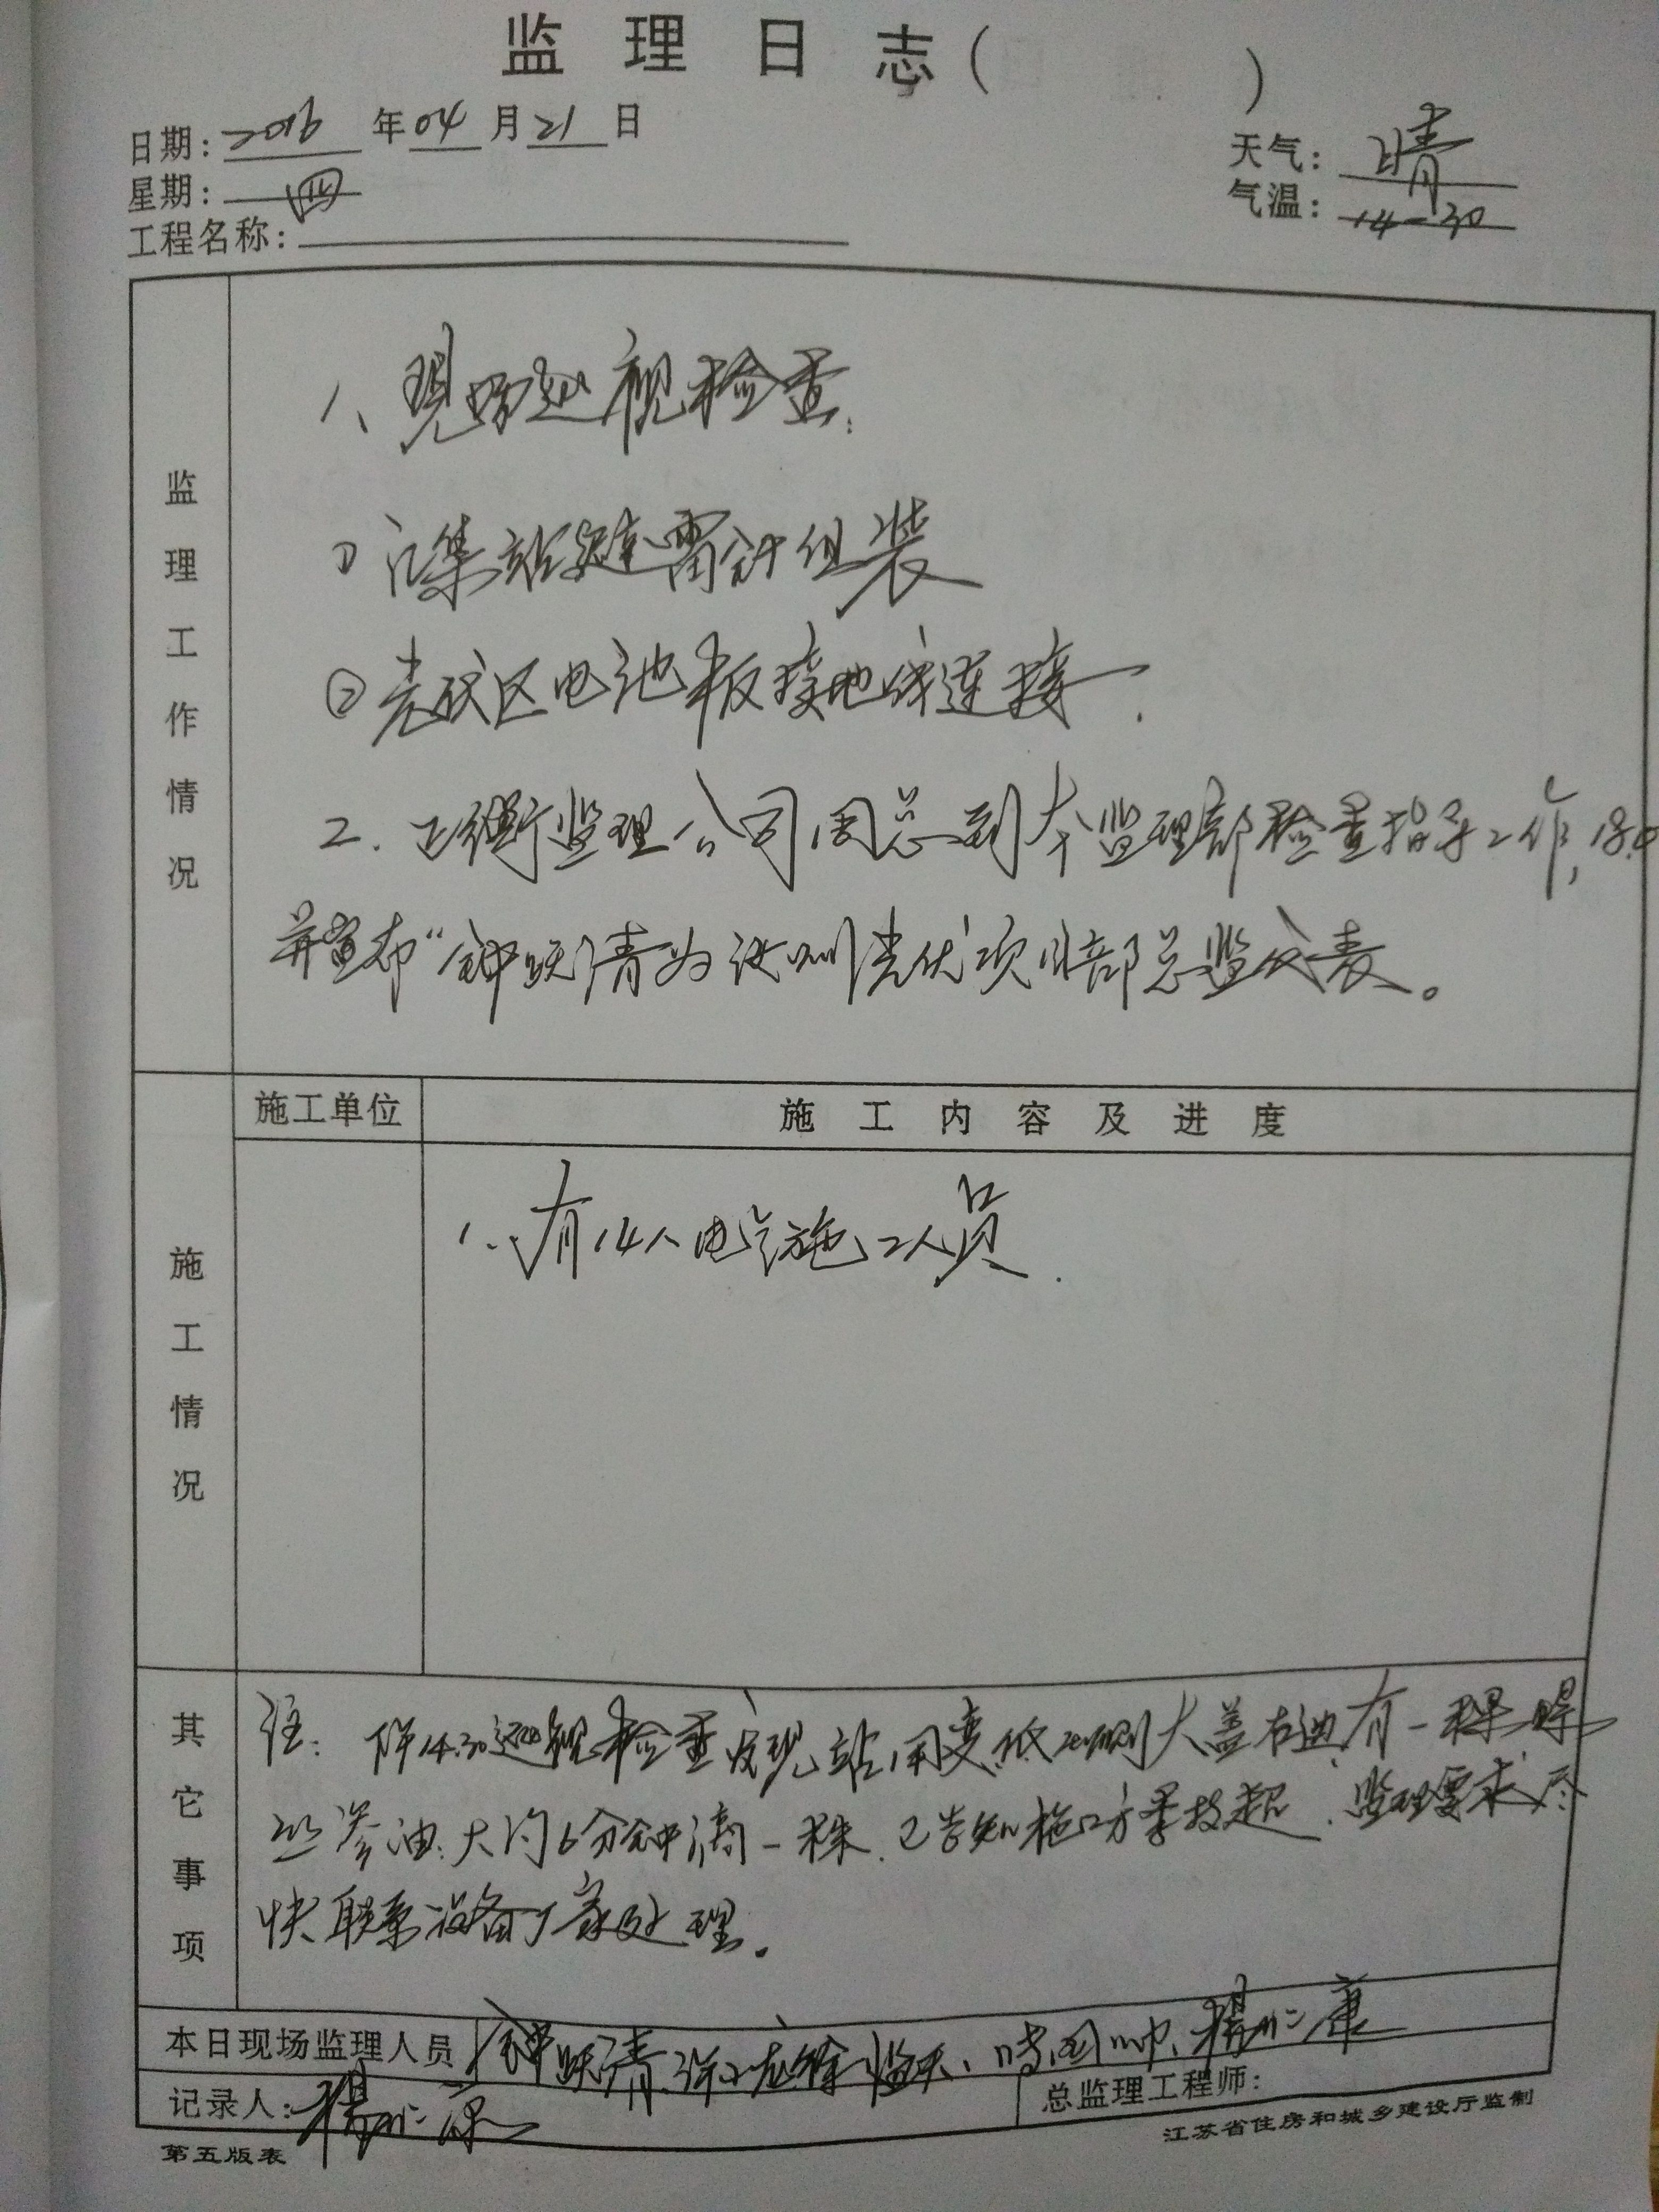 监理日志( )
日期: 2016 年 04 月 21 日
天气: 晴
星期: 四
气温: 14-30
工程名称:
监理工作情况
1、现场巡视检查:
1) 汇集站避雷针组装
② 光伏区电池板接地线连接.
2. 监理公司周总到本监理部检查指导工作,
并宣布“钟跃清为 光伏项目部总监代表。
施工单位
施工内容及进度
施工情况
1、有14人电气施工人员.
其它事项
注: 下午4:30巡视检查发现站用变低压侧大盖右边有一颗螺
丝渗油.大约6分钟滴一珠.已告知施工方 .监理要求尽
快联系设备厂家处理。
本日现场监理人员 钟跃清
记录人:
总监理工程师:
第五版表
江苏省住房和城乡建设厅监制